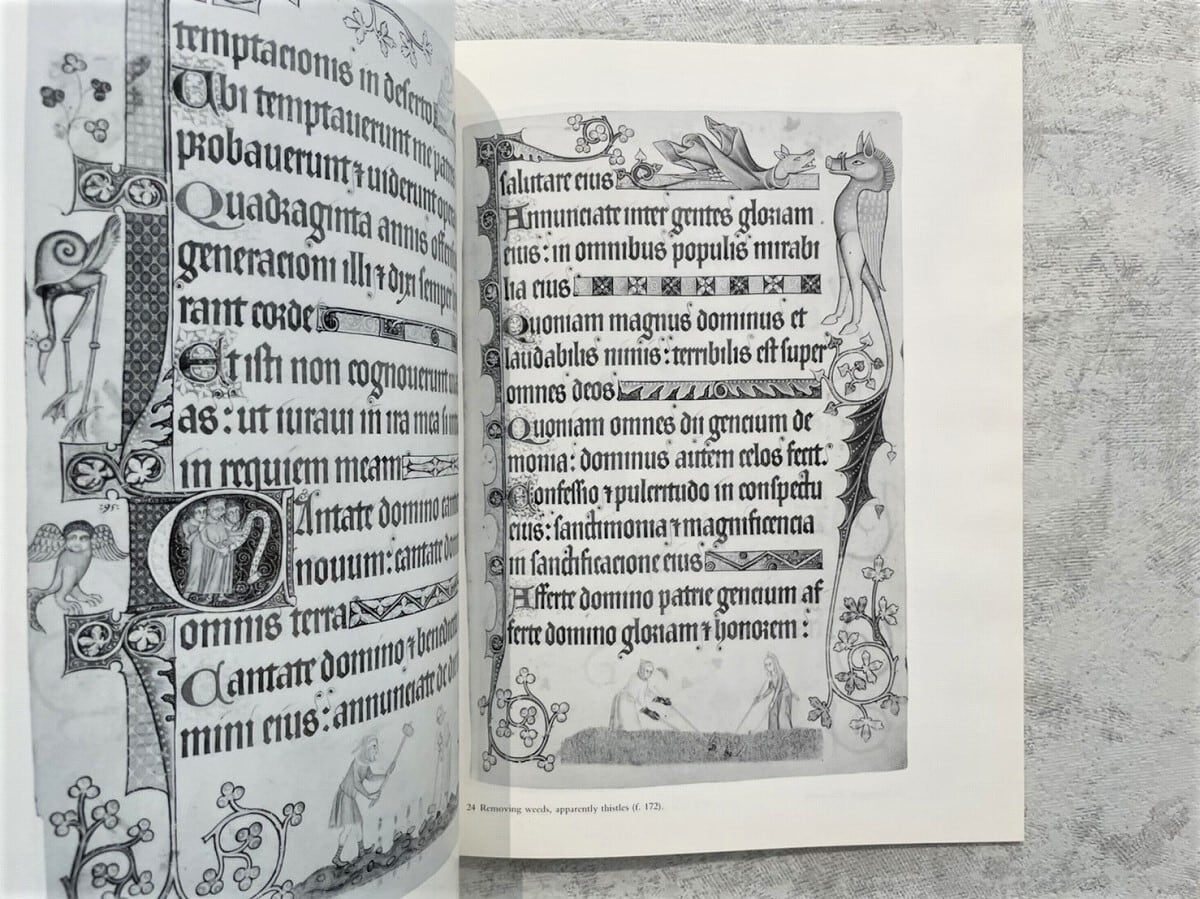 temptacionis in deserto
Ubi temptauerunt me patres
probauerunt ⁊ uiderunt opera
Quadraginta annis offen
generacioni illi ⁊ dixi semper
rant corde
Et isti non cognouerunt
as: ut iuraui in ira mea si
in requiem meam
.95.
CAntate domino
nouum: cantate
omnis terra
Cantate domino ⁊ bened
mini eius: annunciate de
salutare eius
Annunciate inter gentes gloriam
eius: in omnibus populis mirabi
lia eius
Quoniam magnus dominus et
laudabilis nimis: terribilis est super
omnes deos
Quoniam omnes dii gencium de
monia: dominus autem celos fecit.
Confessio ⁊ pulcritudo in conspectu
eius: sanctimonia ⁊ magnificencia
in sanctificacione eius
Afferte domino patrie gencium af
ferte domino gloriam ⁊ honorem:
24 Removing weeds, apparently thistles (f. 172).